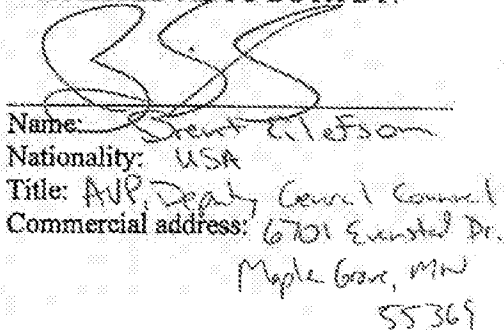 Name: Brent Eilefson
Nationality: USA
Title: AVP, Deputy General Counsel
Commercial address: 6701 Evenstad Dr.
Maple Grove, MN
55369